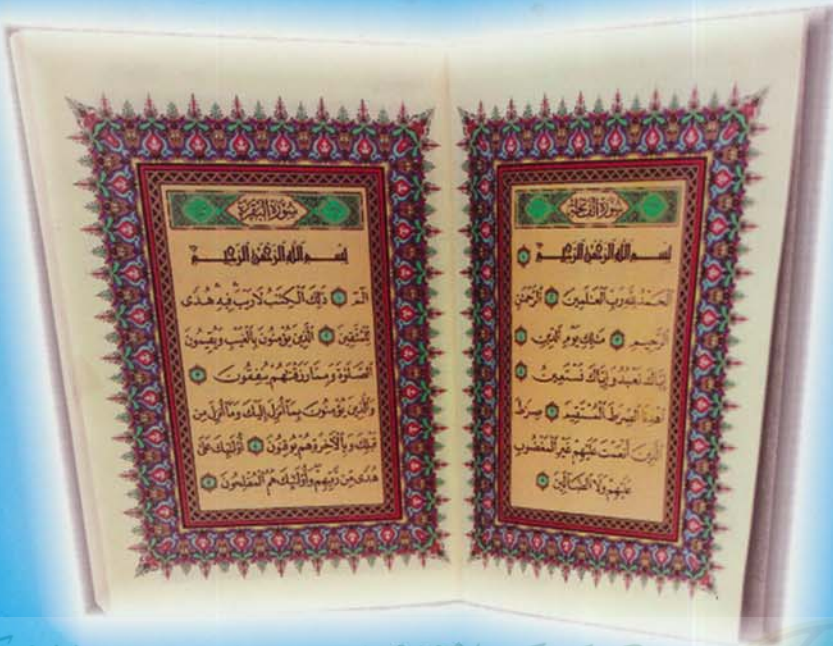 سُورَةُ الْفَاتِحَةِ
بِسْمِ اللَّهِ الرَّحْمَٰنِ الرَّحِيمِ ١
الْحَمْدُ لِلَّهِ رَبِّ الْعَالَمِينَ ٢ الرَّحْمَٰنِ
الرَّحِيمِ ٣ مَالِكِ يَوْمِ الدِّينِ ٤
إِيَّاكَ نَعْبُدُ وَإِيَّاكَ نَسْتَعِينُ ٥
اهْدِنَا الصِّرَاطَ الْمُسْتَقِيمَ ٦ صِرَاطَ
الَّذِينَ أَنْعَمْتَ عَلَيْهِمْ غَيْرِ الْمَغْضُوبِ
عَلَيْهِمْ وَلَا الضَّالِّينَ ٧
سُورَةُ الْبَقَرَةِ
بِسْمِ اللَّهِ الرَّحْمَٰنِ الرَّحِيمِ
الم ١ ذَٰلِكَ الْكِتَابُ لَا رَيْبَ فِيهِ هُدًى
لِلْمُتَّقِينَ ٢ الَّذِينَ يُؤْمِنُونَ بِالْغَيْبِ وَيُقِيمُونَ
الصَّلَوٰةَ وَمِمَّا رَزَقْنَاهُمْ يُنْفِقُونَ ٣
وَالَّذِينَ يُؤْمِنُونَ بِمَا أُنْزِلَ إِلَيْكَ وَمَا أُنْزِلَ مِنْ
قَبْلِكَ وَبِالْآخِرَةِ هُمْ يُوقِنُونَ ٤ أُولَٰئِكَ عَلَىٰ
هُدًى مِنْ رَبِّهِمْ وَأُولَٰئِكَ هُمُ الْمُفْلِحُونَ ٥